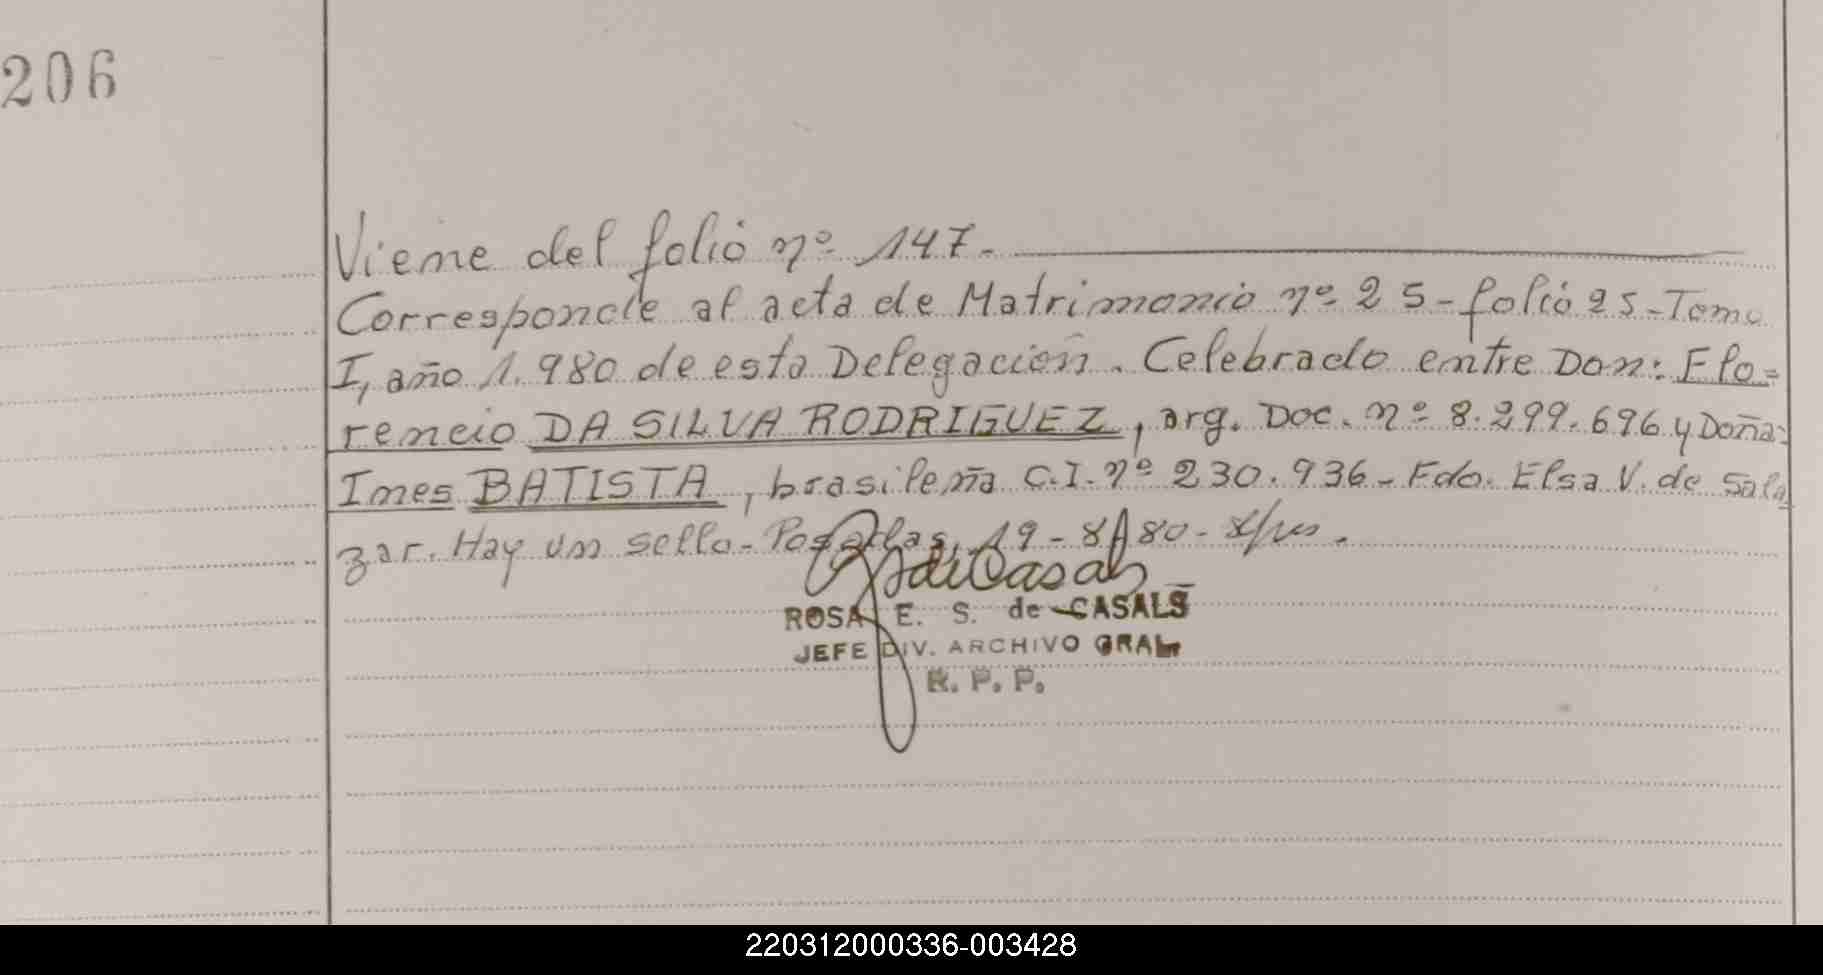 206
Viene del folio nº 147.-
Corresponde al acta de Matrimonio nº 25-folio 25-Tomo
I, año 1.980 de esta Delegación. Celebrado entre Don: Flo=
rencio DA SILVA RODRIGUEZ, arg. Doc. nº 8.299.696 y Doña:
Ines BATISTA, brasileña C.I. nº 230.936- Fdo. Elsa V. de Sala
zar. Hay un sello- Posadas, 19-8-80-
ROSA E. S. de CASALS
JEFE DIV. ARCHIVO GRAL.
R. P. P.
220312000336-003428